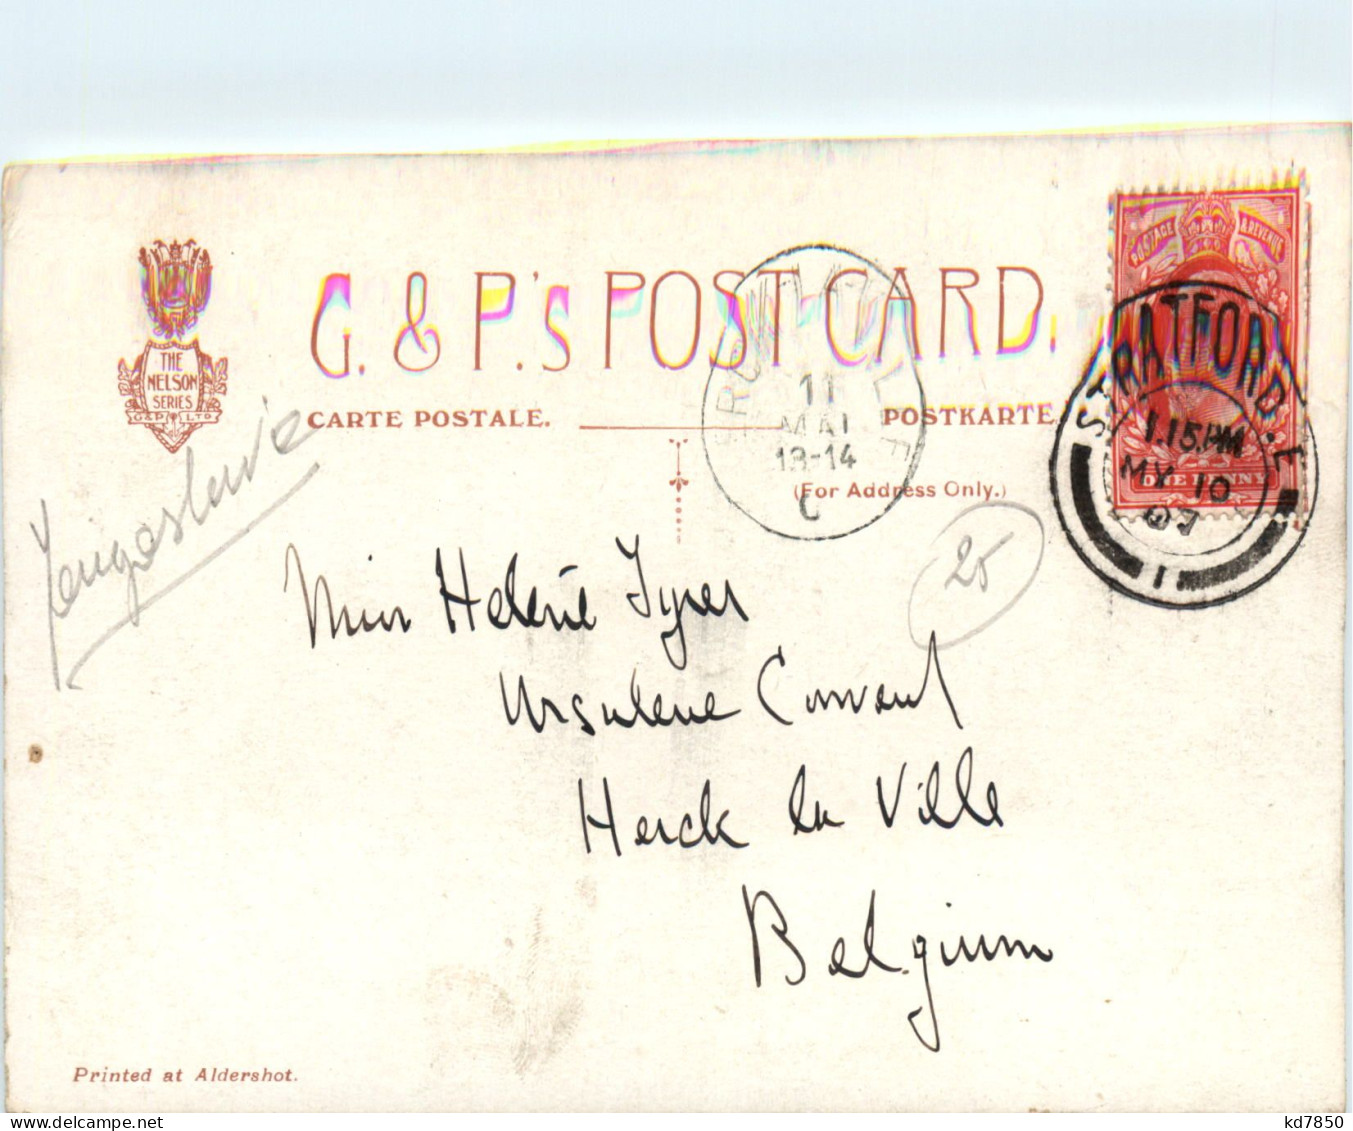 POSTAGE & REVENUE
G. & P.'s POST CARD.
THE
NELSON
SERIES
G&P LTD
CARTE POSTALE. POSTKARTE
(For Address Only.)
11
MAI
13-14
C
STRATFORD. E
1.15.PM
MY 10
1
ONE PENNY
25
Miss Helene Tyrer
Ursulene Convent
Herck la Ville
Belgium
Printed at Aldershot.
kd7850